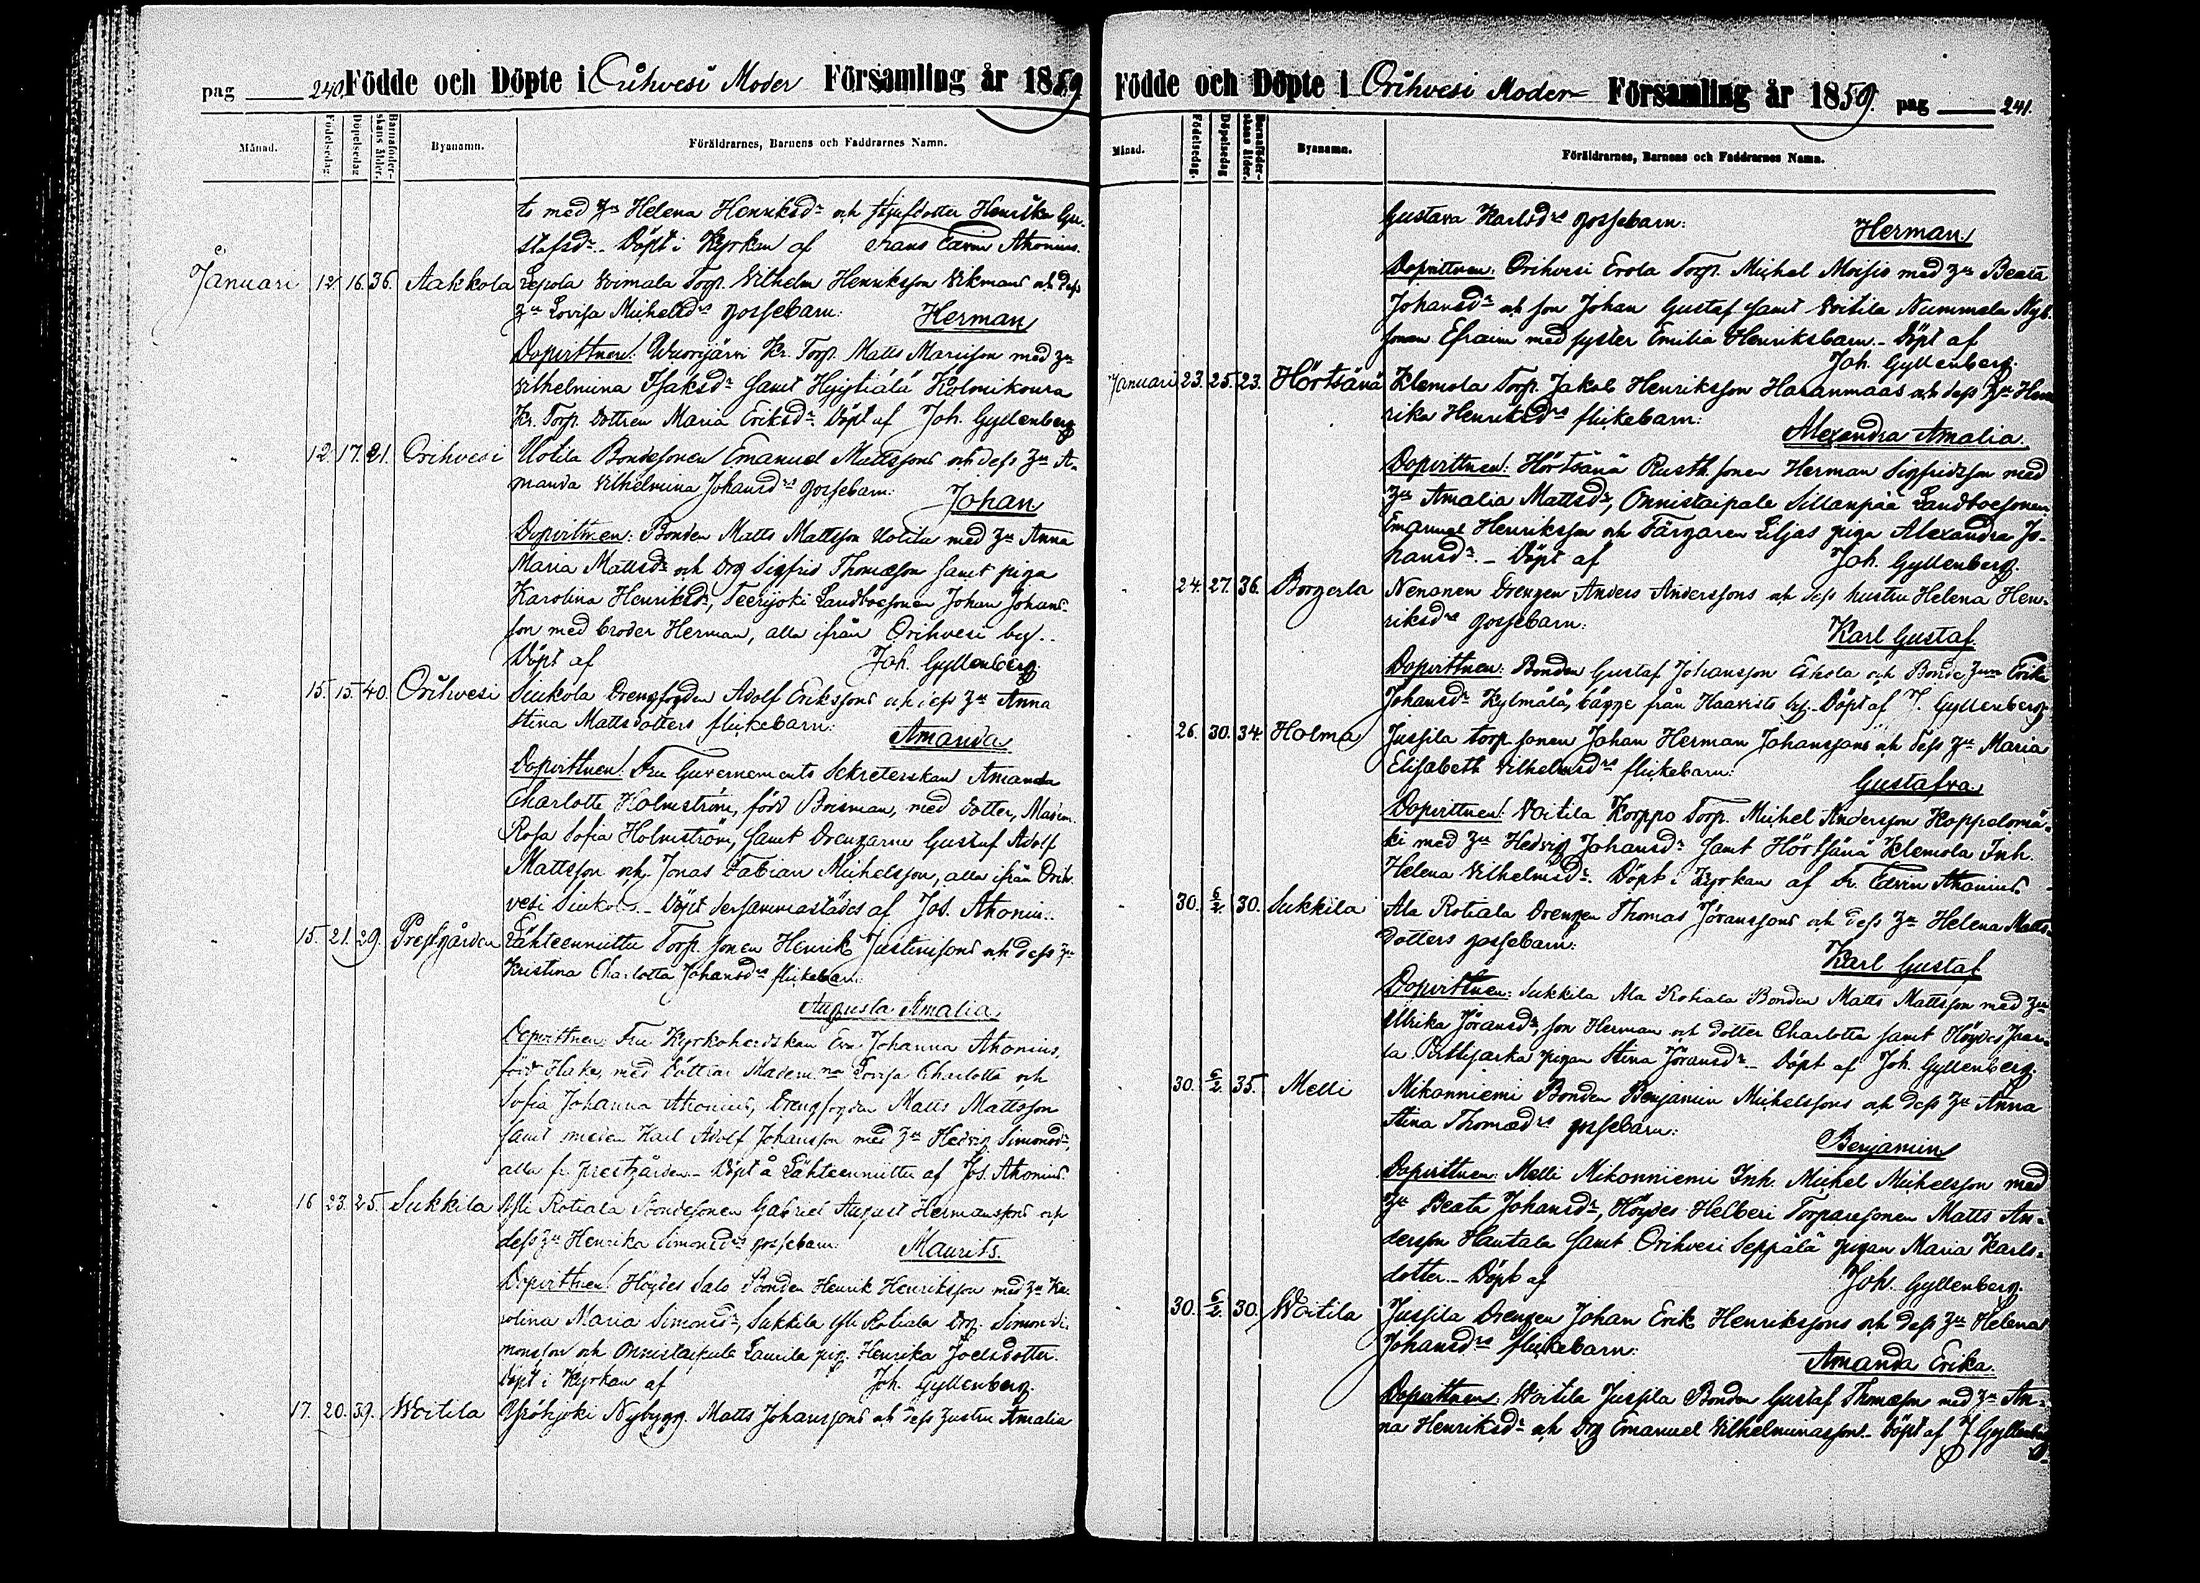 pag 240. Födde och Döpte i Orihvesi Moder Församling år 1859
Månad. Födelsedag. Döpelsedag Barnaföderskans ålder. Byanamn. Föräldrarnes, Barnens och Faddrarnes Namn.
to med Hu Helena Henriksdr och Hjufdotter Henrika Gu-
stafsdr. Döpt i Kyrkan af Frans Edvin Ahonius.
Januari 12 16. 36. Aakkola Lepola Voimala Torp. Vilhelm Henriksson Vikmans och dess
Hu Lovisa Michelsdrs gossebarn: Herman
Dopvittnen: Wuorijärvi Kr. Torp. Matts Mariison med Hu
Vilhelmina Isaksdr samt Hyyttiälä Kolonikoura
Kr. Torp. dottren Maria Eriksdr. Döpt af Joh. Gyllenberg
12. 17. 21. Orihvesi Uotila Bondesonen Emanuel Mattssons och dess Hu A-
manda Vilhelmina Johansdrs gossebarn: Johan
Dopvittnen: Bonden Matts Mattsson Uotila med Hu Anna
Maria Mattsdr och Drg Sigfrid Thomasson samt piga
Karolina Henriksdr, Teerijoki Landboesonen Johan Johans-
son med broder Herman, alla ifrån Orihvesi by.
Döpt af Joh. Gyllenberg.
15. 15. 40. Orihvesi Siukola Drengfogden Adolf Erikssons och dess Hu Anna
Stina Mattsdotters flickebarn: Amanda
Dopvittnen: Fru Guvernements Sekreterskan Amanda
Charlotte Holmström, född Boisman, med dotter, Madem.
Rosa Sofia Holmström, samt Drengarne Gustaf Adolf
Mattsson och Jonas Fabian Michelsson, alla ifrån Orih-
vesi Siukola. Döpt dersammastädes af Jos. Ahonius.
15. 21. 29. Prestgården Lähteenniittu Torp. sonen Henrik Justinssons och dess Hu
Kristina Charlotta Johansdrs flickebarn:
Augusta Amalia
Dopvittnen: Fru Kyrkoherdskan Eva Johanna Ahonius,
född Hake, med döttrar Mademna Lovisa Charlotta och
Sofia Johanna Ahonius, Drengfogden Matts Mattsson
samt Karl Adolf Johansson med Hu Hedvig Simonsdr
alla fr. prestgården. Döpt å Lähteenniittu af Jos. Ahonius.
16 23. 25. Sukkila Yli Rotiala Bondesonen Gabriel August Hermanssons och
dess Hu Henrika Simonsdrs gossebarn: Maurits.
Dopvittnen: Höydes Salo Bonden Henrik Henriksson med Hu Ka-
rolina Maria Simonsdr, Sukkila Yli Rotiala Drg. Simon Si-
monsson och Onnistaipale Laurila pig. Henrika Joelsdotter.
Döpt i Kyrkan af Joh. Gyllenberg.
17. 20. 39. Woitila Yröhjoki Nybygg. Matts Johanssons och dess hustru Amalia
Födde och Döpte i Orihvesi Moder- Församling år 1859. pag 241.
Månad. Födelsedag. Döpelsedag Barnaföderskans ålder. Byanamn. Föräldrarnes, Barnens och Faddrarnes Namn.
Gustava Karlsdrs gossebarn: Herman
Dopvittnen: Orihvesi Erola Torp. Michel Moisio med Hu Beata
Johansdr och son Johan Gustaf samt Voitila Nummela Nyb.
sonen Efraim med syster Emilia Henriksbarn. Döpt af
Joh. Gyllenberg.
Januari 23. 25. 23. Hörtsänä Klemola Torp. Jakob Henriksson Haranmaas och dess Hu Hen-
rika Henriksdrs flickebarn: Alexandra Amalia.
Dopvittnen: Hörtsänä Rusth. sonen Herman Sigfridsson med
Hu Amalia Mattsdr, Onnistaipale Sillanpää Landboesonen
Emanuel Henriksson och Färgaren Liljas piga Alexandra Jo-
hansdr. - Döpt af Joh. Gyllenberg.
24. 27. 36. Borgerla Nenanen Drengen Anders Anderssons och dess hustru Helena Hen-
riksdrs gossebarn: Karl Gustaf
Dopvittnen: Bonden Gustaf Johansson Eskola och Bonde Hun Erika
Johansdr Kylmälä, bägge från Haavisto by. Döpt af J. Gyllenberg
26. 30. 34. Holma Jussila torp sonen Johan Herman Johanssons och dess Hu Maria
Elisabeth Vilhelmsdrs flickebarn: Gustafva
Dopvittnen: Voitila Korppo Torp. Michel Andersson Koppelomä-
ki med Hu Hedvig Johansdr samt Hörtsänä Klemola Inh.
Helena Vilhelmsdr. Döpt i Kyrkan af Fr. Edvin Ahonius.
30. 6/2. 30. Sukkila Ala Rotiala Drengen Thomas Jöranssons och dess Hu Helena Matts-
dotters gossebarn: Karl Gustaf
Dopvittnen: Sukkila Ala Rotiala Bonden Matts Mattsson med Hu
Ulrika Jöransdr, son Herman och dotter Charlotta samt Höydes
pigan Stina Jöransdr. Döpt af Joh. Gyllenberg.
30. 6/2. 35. Melli Mikonniemi Bonden Benjamin Michelssons och dess Hu Anna
Stina Thomædrs gossebarn: Benjamin
Dopvittnen: Melli Mikonniemi Inh. Michel Michelsson med
Hu Beata Johansdr, Höydes Helberi Torparesonen Matts An-
dersson Hautala samt Orihvesi Seppälä pigan Maria Karls-
dotter. - Döpt af Joh. Gyllenberg.
30. 6/2. 30. Woitila Jussila Drengen Johan Erik Henrikssons och dess Hu Helena
Johansdrs flickebarn: Amanda Erika.
Dopvittnen: Woitila Jussila Bonden Gustaf Thomasson med Hu An-
na Henriksdr och Drg Emanuel Vilhelminasson. Döpt af J. Gyllenberg